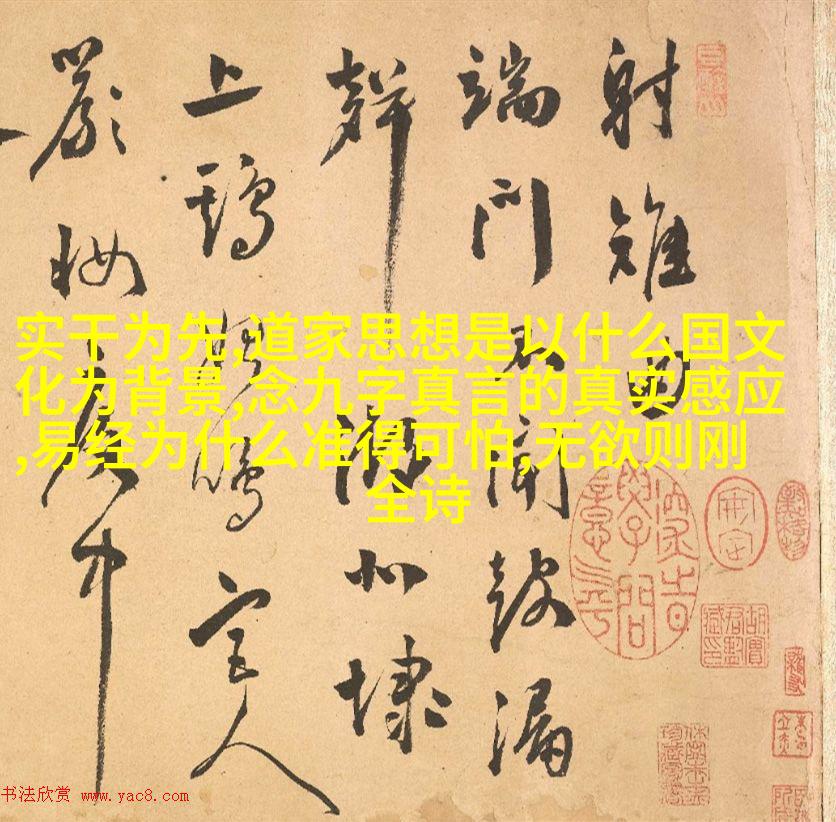 射雉
端门不闻鼓漏
聲湖北埭
上鷄始鳴宫人
嚴妝
实干为先,道家思想是以什么国文
化为背景,念九字真言的真实感应
,易经为什么准得可怕,无欲则刚
全诗
书法欣赏 www.yac8.com